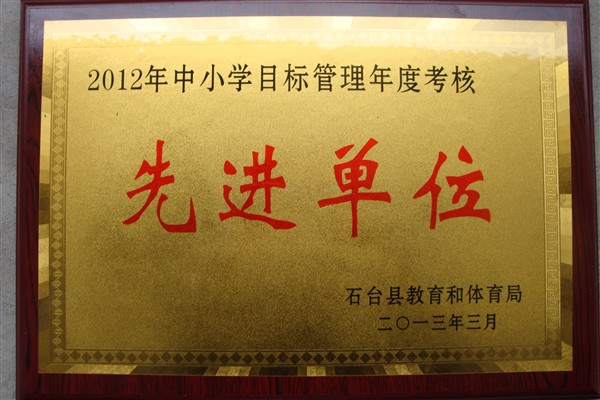 2012年中小学目标管理年度考核
先进单位
石台县教育和体育局
二〇一三年三月